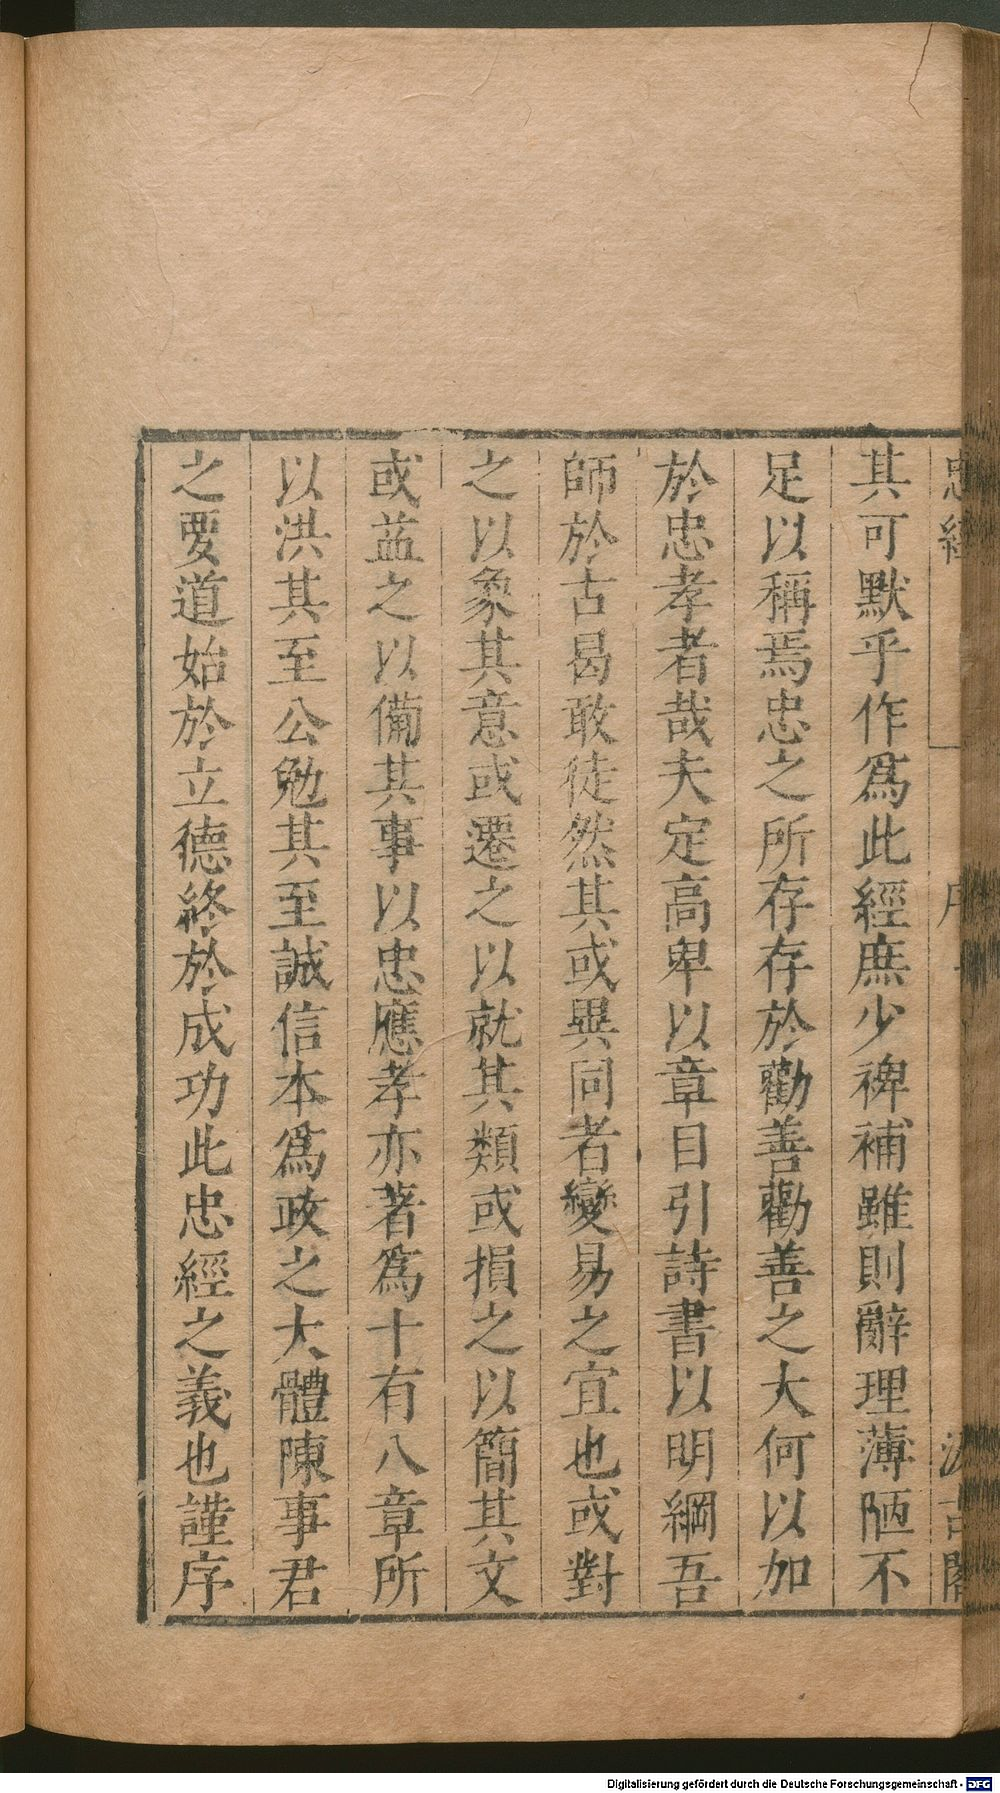 其可默乎作爲此經庶少裨補雖則辭理薄陋不
足以稱焉忠之所存存於勸善勸善之大何以加
於忠孝者哉夫定高卑以章目引詩書以明綱吾
師於古曷敢徒然其或異同者變易之宜也或對
之以象其意或遷之以就其類或損之以簡其文
或益之以備其事以忠應孝亦著爲十有八章所
以洪其至公勉其至誠信本爲政之大體陳事君
之要道始於立德終於成功此忠經之義也謹序
Digitalisierung gefördert durch die Deutsche Forschungsgemeinschaft - DFG